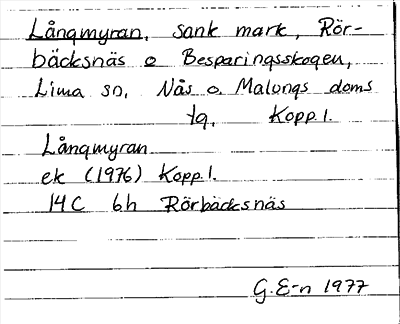 Långmyran, sank mark, Rör-
bäcksnäs o Besparingsskogen,
Lima sn, Nås o. Malungs doms
tg, Kopp.l.
Långmyran
ek (1976) Kopp.l.
14C 6h Rörbäcksnäs
G.E-n 1977